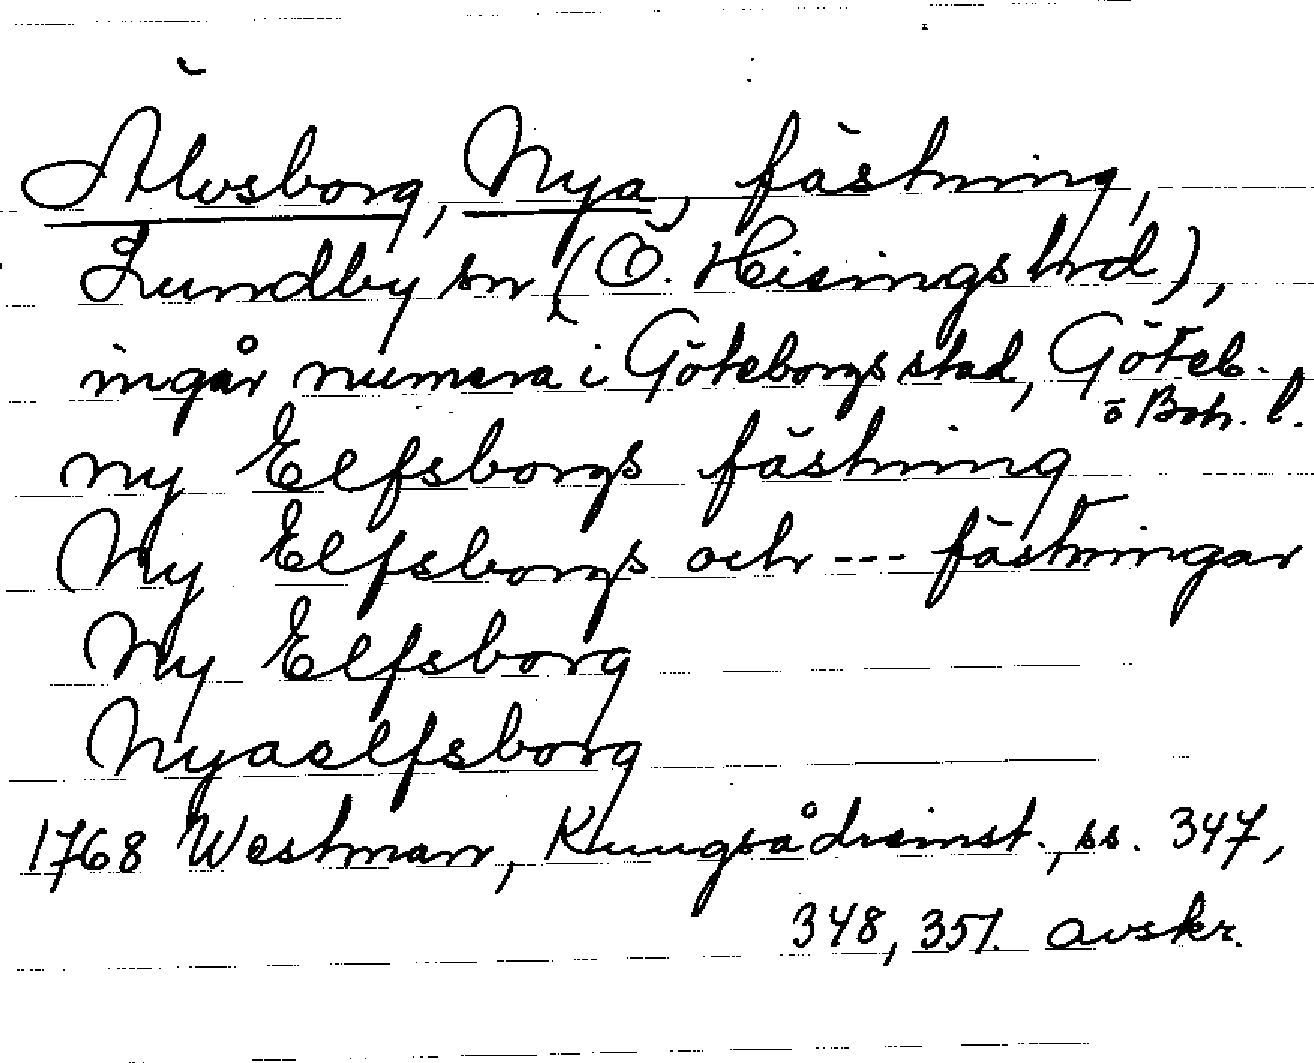 Älvsborg, Nya, fästning,
Lundby sn (Ö. Hisings hd),
ingår numera i Göteborgs stad, Göteb.
o Boh. l.
ny Elfsborgs fästning
Ny Elfsborgs och --- fästningar
Ny Elfsborg
Nyaelfsborg
1768 Westman, Kungsådreinst., ss. 347,
348, 351. avskr.